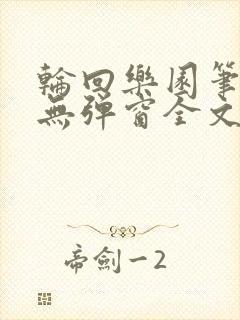 輪回樂園筆
無彈窗全文
帝劍一2